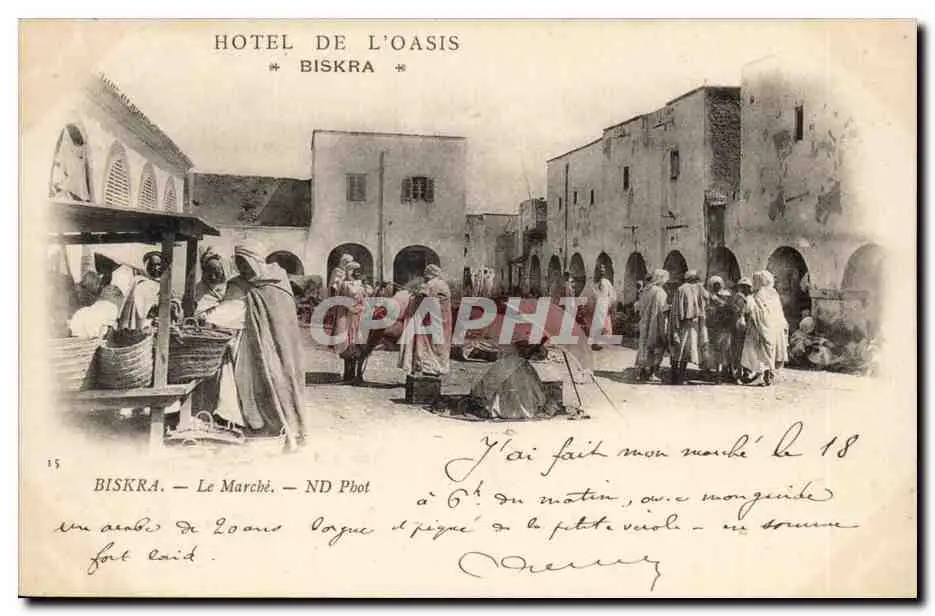 HOTEL DE L'OASIS
* BISKRA *
CPHIL
15
BISKRA. — Le Marché. — ND Phot
J'ai fait mon marché le 18
à 6h du matin, avec mon guide
un arabe de 20 ans borgne et piqué de la petite vérole — en somme
fort laid.